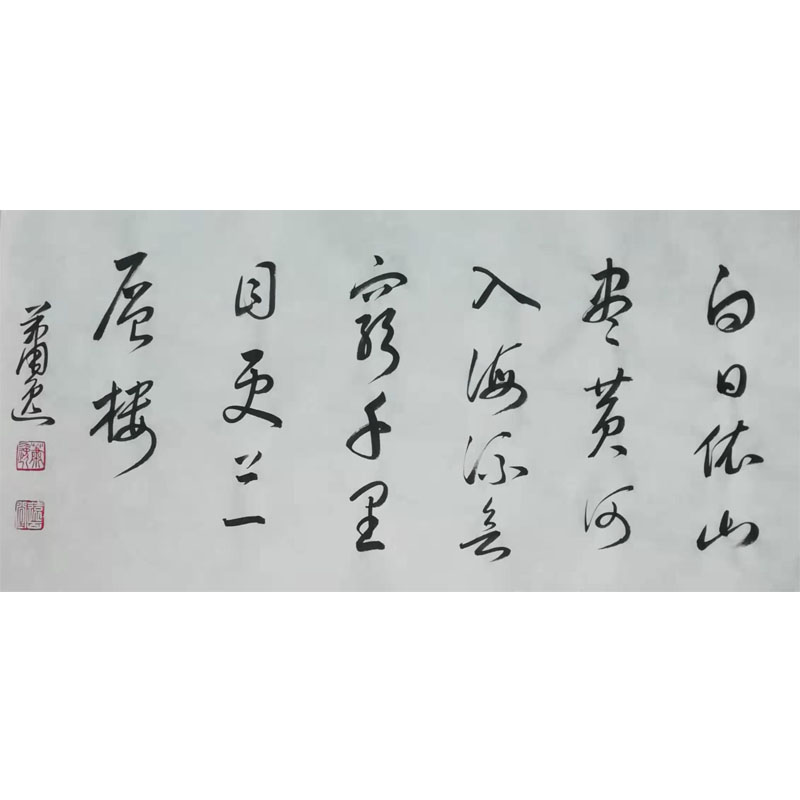 白日依山
尽黄河
入海流欲
穷千里
目更上一
层楼
萧逸